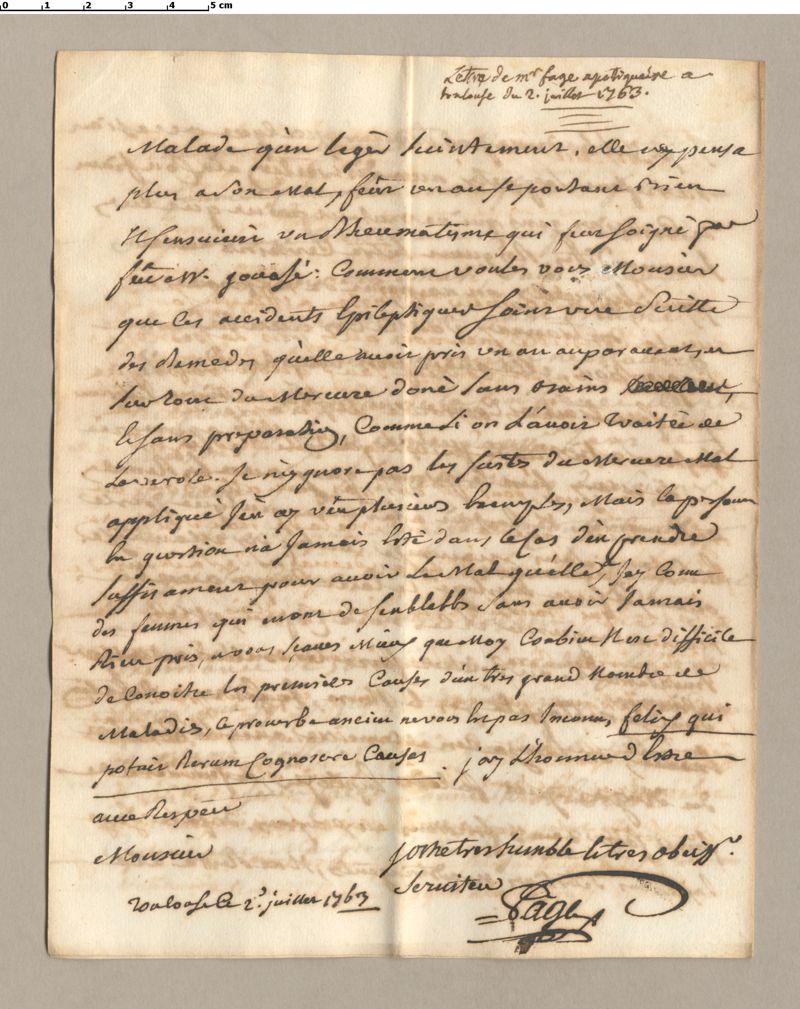 0 1 2 3 4 5 cm
Letre de mr fage apotiquaire a
toulouse du 2. juillet 1763.
Malade qu'un leger suintement, elle ne pensa
plus a son mal, feut un an se portant bien
un Rheumatisme qui feut soigné par
feu Mr. : Comment voules vous Monsieur
que les accidents Epileptiques soint une suitte
des Remedes qu'elle avoit pris un an auparavant, en
du Mercure doné sans bains
et sans preparation, Comme si on l'avoit traitée de
La verole. Je n'ygnore pas les suites du Mercure Mal
appliqué J'en ay veu plusieurs Exemples, Mais la personne
En question n'a Jamais Esté dans le Cas d'en prendre
suffisament pour avoir Le Mal qu'elle a, Jay Conu
des femmes qui en ont de semblables sans avoir Jamais
Rien pris, vous sçaves Mieux que Moy Combien Il est difficile
de Conoitre les premieres Causes d'un tres grand Nombre de
Maladies, le proverbe ancien ne vous Est pas Inconnu, felix qui
potuit Rerum Cognoscere Causas. j'ay L'honneur d'Estre
avec Respect
Monsieur
votre tres humble et tres obeiss.r
Serviteur
toulouse Ce 2.e juillet 1763
Fage